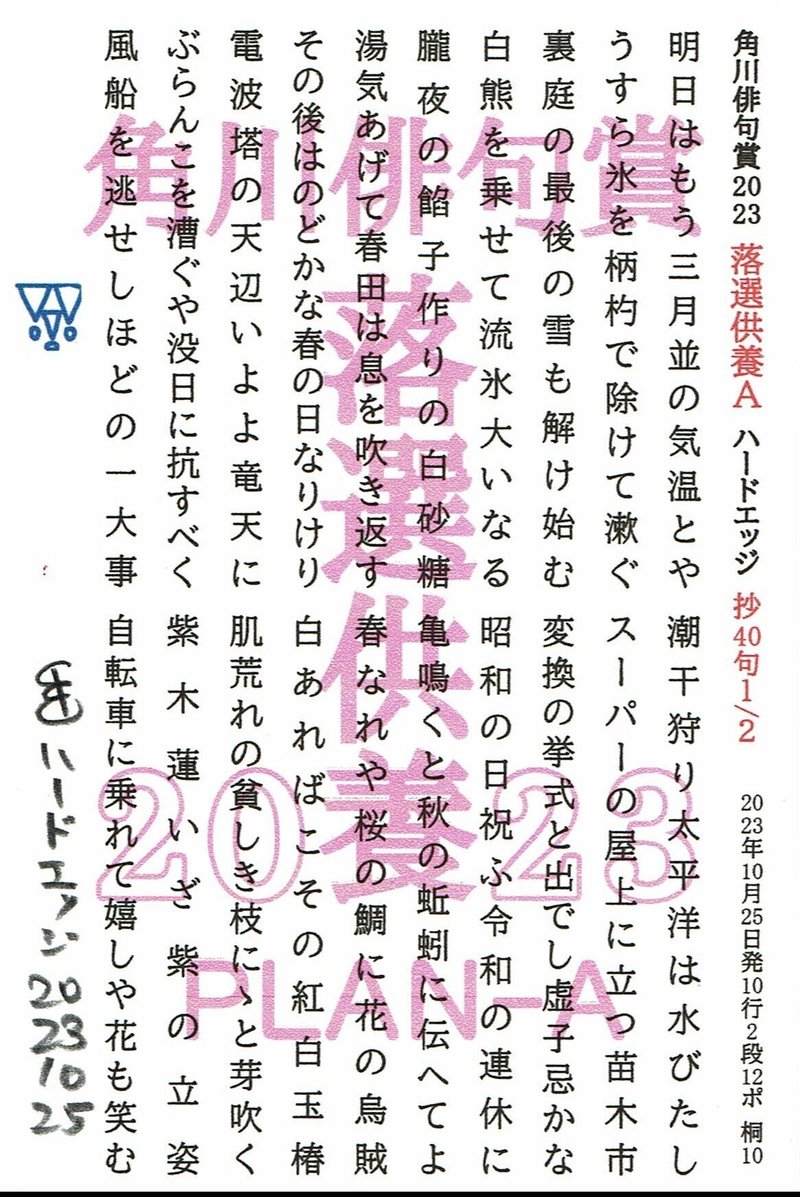 角川俳句賞2023 落選供養A ハードエッジ 抄40句1/2 2023年10月25日発10行2段12ポ 桐10
明日はもう三月並の気温とや
うすら氷を柄杓で除けて漱ぐ
裏庭の最後の雪も解け始む
白熊を乗せて流氷大いなる
朧夜の餡子作りの白砂糖
湯気あげて春田は息を吹き返す
その後はのどかな春の日なりけり
電波塔の天辺いよよ竜天に
ぶらんこを漕ぐや没日に抗すべく
風船を逃せしほどの一大事
潮干狩り太平洋は水びたし
スーパーの屋上に立つ苗木市
変換の挙式と出でし虚子忌かな
昭和の日祝ふ令和の連休に
亀鳴くと秋の蚯蚓に伝へてよ
春なれや桜の鯛に花の烏賊
白あればこその紅白玉椿
肌荒れの貧しき枝にゝと芽吹く
紫木蓮いざ紫の立姿
自転車に乗れて嬉しや花も笑む
角川俳句賞
落選供養
2023
PLAN-A
ハードエッジ 20 23 10 25